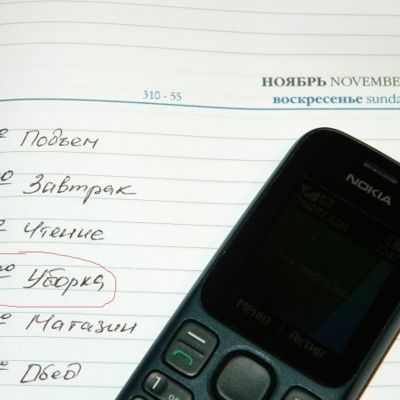 НОЯБРЬ NOVEMBE
310 - 55
воскресенье sunda
Подъем
Завтрак
Чтение
Уборка
Магазин
Обед
NOKIA
Меню
Актив
1